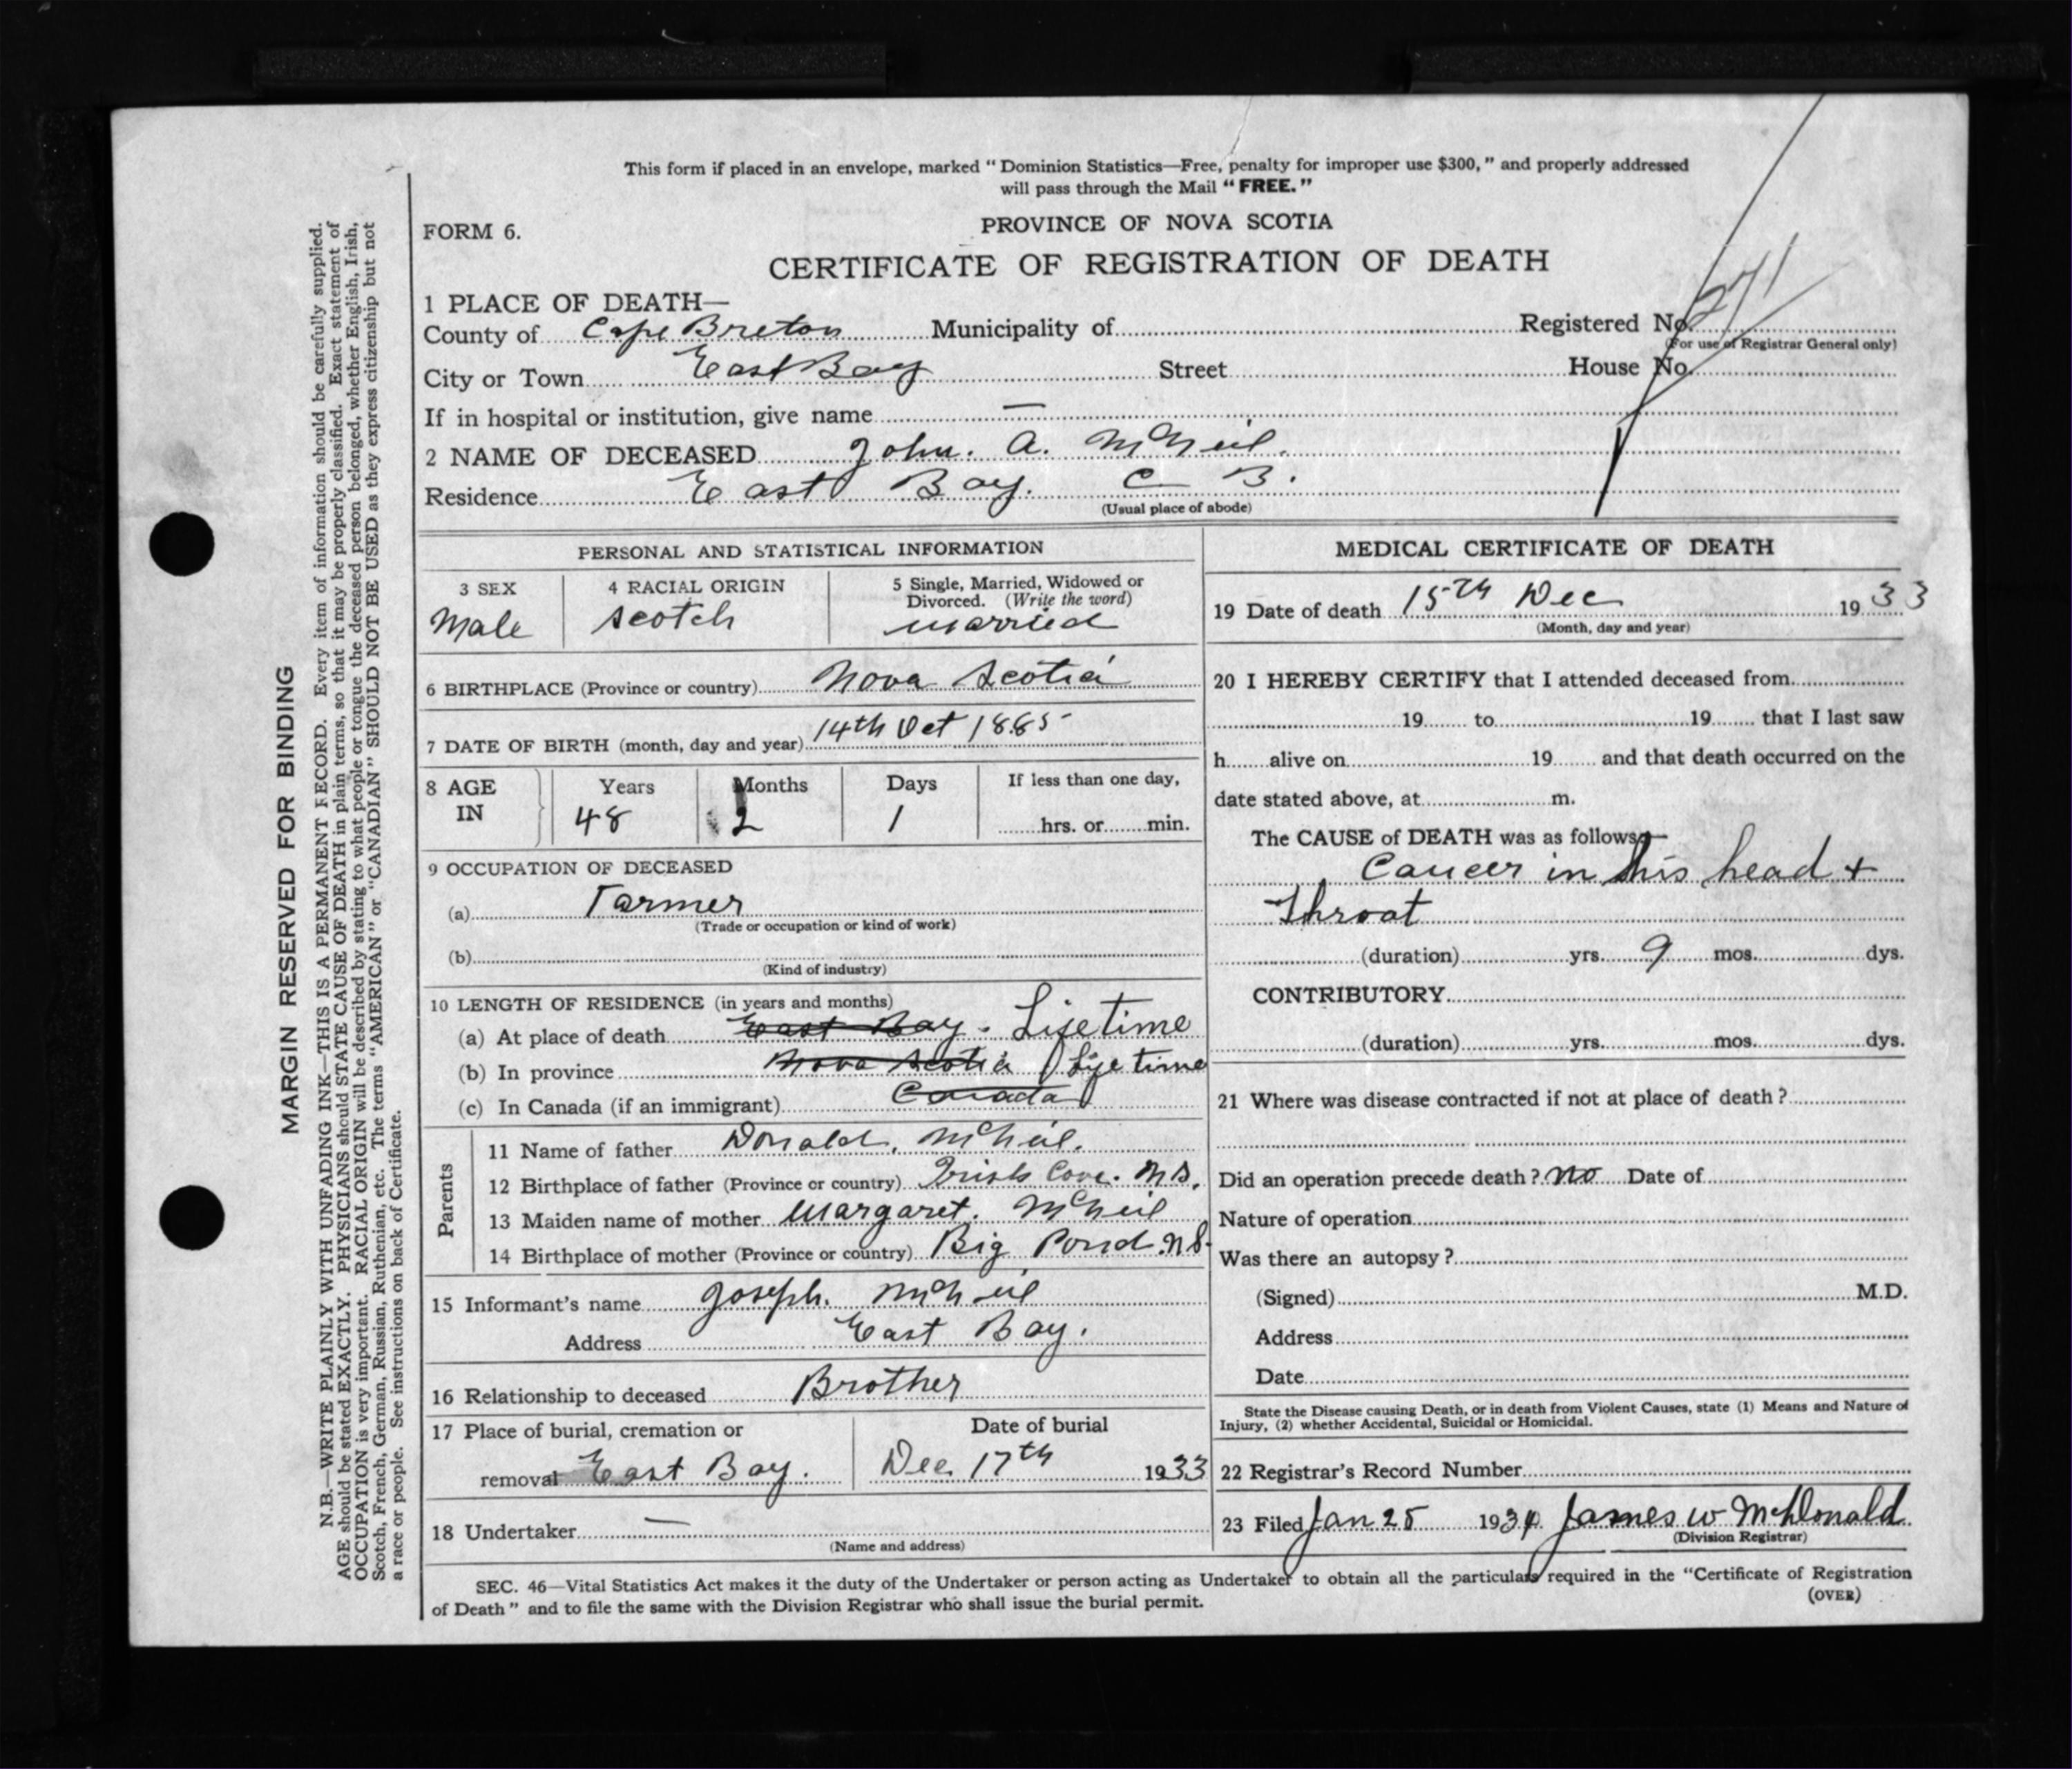 This form if placed in an envelope, marked “Dominion Statistics—Free, penalty for improper use $300,” and properly addressed
will pass through the Mail “FREE.”
FORM 6.
PROVINCE OF NOVA SCOTIA
CERTIFICATE OF REGISTRATION OF DEATH
1 PLACE OF DEATH—
County of Cape Breton Municipality of Registered No. 271
(For use of Registrar General only)
City or Town East Bay Street House No.
If in hospital or institution, give name —
2 NAME OF DECEASED John. A. McNeil.
Residence East Bay. C B.
(Usual place of abode)
PERSONAL AND STATISTICAL INFORMATION
3 SEX 4 RACIAL ORIGIN 5 Single, Married, Widowed or
Divorced. (Write the word)
Male Scotch married
6 BIRTHPLACE (Province or country) Nova Scotia
7 DATE OF BIRTH (month, day and year) 14th Oct 1885
8 AGE IN Years Months Days If less than one day,
48 2 1 hrs. or min.
9 OCCUPATION OF DECEASED
(a) Farmer
(Trade or occupation or kind of work)
(b)
(Kind of industry)
10 LENGTH OF RESIDENCE (in years and months)
(a) At place of death East Bay. Lifetime
(b) In province Nova Scotia Lifetime
(c) In Canada (if an immigrant) Canada
Parents
11 Name of father Donald. McNeil.
12 Birthplace of father (Province or country) Irish Cove. N S.
13 Maiden name of mother Margaret. McNeil
14 Birthplace of mother (Province or country) Big Pond. N S.
15 Informant's name Joseph. McNeil
Address East Bay.
16 Relationship to deceased Brother
17 Place of burial, cremation or Date of burial
removal East Bay. Dec. 17th 1933
18 Undertaker —
(Name and address)
MEDICAL CERTIFICATE OF DEATH
19 Date of death 15th Dec 1933
(Month, day and year)
20 I HEREBY CERTIFY that I attended deceased from
19 to 19 that I last saw
h alive on 19 and that death occurred on the
date stated above, at m.
The CAUSE of DEATH was as follows:—
Cancer in his head +
Throat
(duration) yrs. 9 mos. dys.
CONTRIBUTORY
(duration) yrs. mos. dys.
21 Where was disease contracted if not at place of death?
Did an operation precede death? no Date of
Nature of operation
Was there an autopsy?
(Signed) M.D.
Address
Date
State the Disease causing Death, or in death from Violent Causes, state (1) Means and Nature of
Injury, (2) whether Accidental, Suicidal or Homicidal.
22 Registrar's Record Number
23 Filed Jan 25 1934. James W McDonald
(Division Registrar)
SEC. 46—Vital Statistics Act makes it the duty of the Undertaker or person acting as Undertaker to obtain all the particulars required in the “Certificate of Registration
of Death” and to file the same with the Division Registrar who shall issue the burial permit.
(OVER)
MARGIN RESERVED FOR BINDING
N.B.—WRITE PLAINLY WITH UNFADING INK—THIS IS A PERMANENT RECORD. Every item of information should be carefully supplied.
AGE should be stated EXACTLY. PHYSICIANS should STATE CAUSE OF DEATH in plain terms, so that it may be properly classified. Exact statement of
OCCUPATION is very important. RACIAL ORIGIN will be described by stating to what people or tongue the deceased person belonged, whether English, Irish,
Scotch, French, German, Russian, Ruthenian, etc. The terms “AMERICAN” or “CANADIAN” SHOULD NOT BE USED as they express citizenship but not
a race or people. See instructions on back of Certificate.